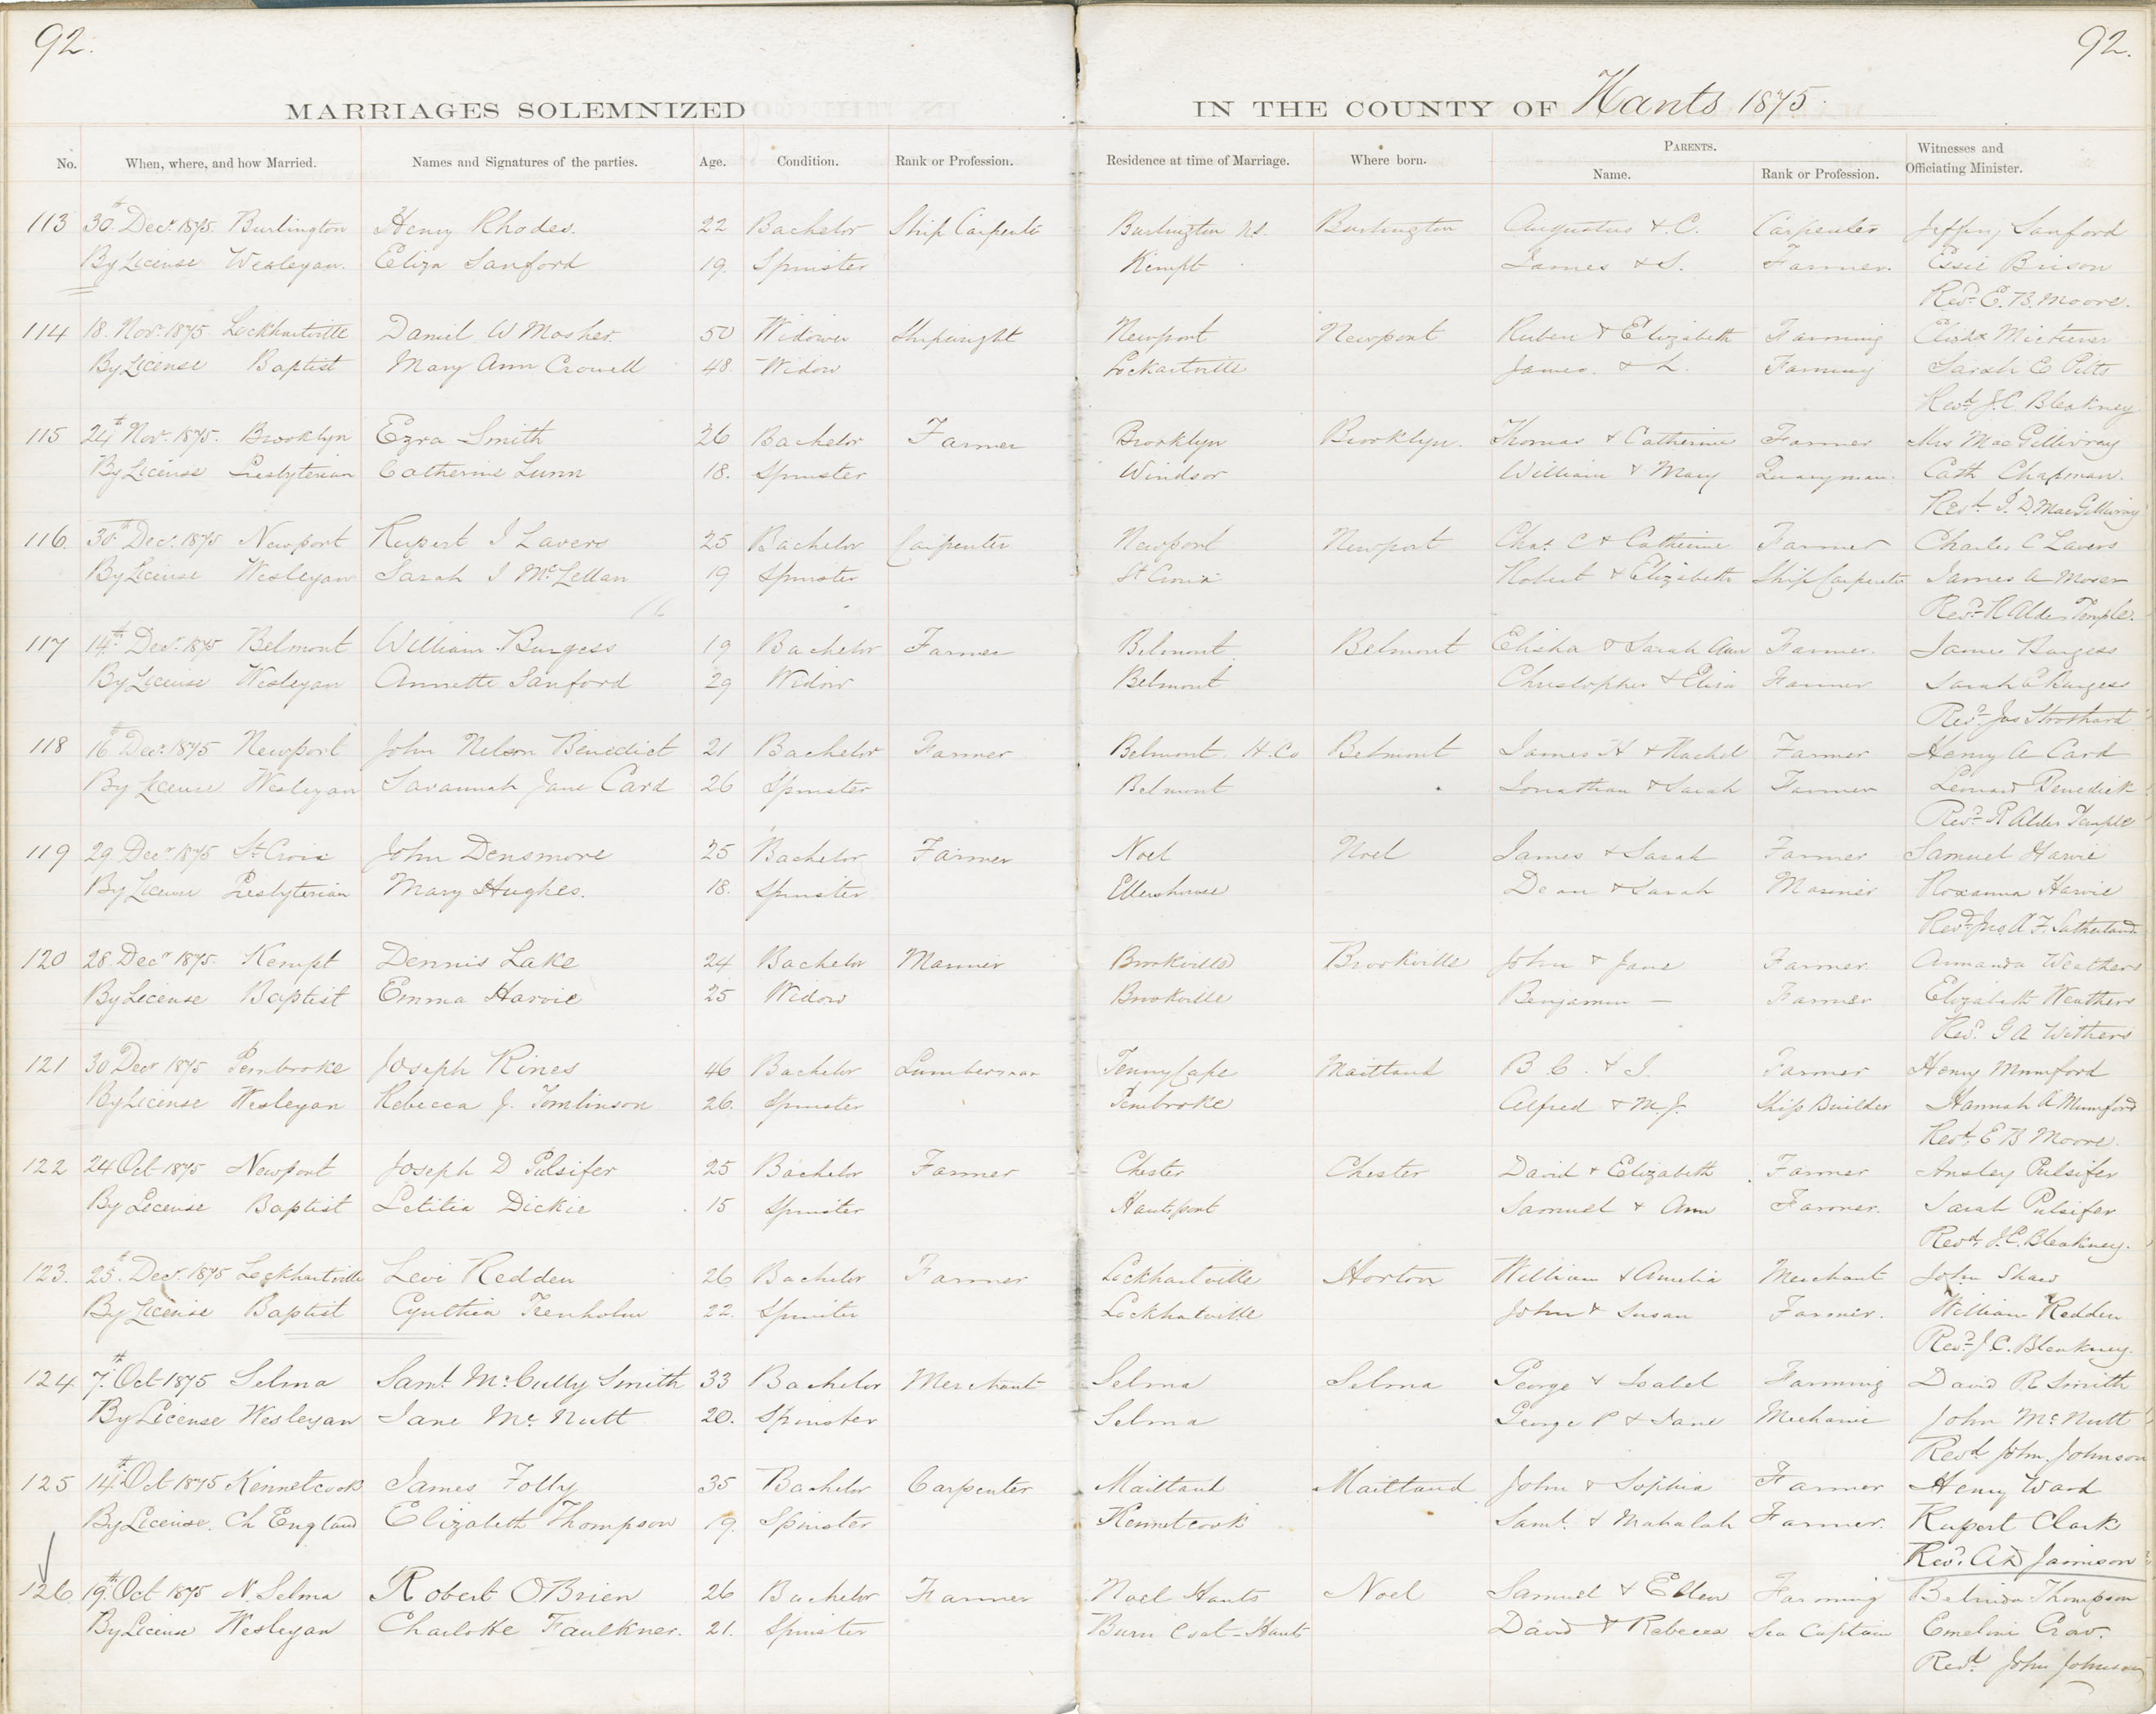 92.
92.
MARRIAGES SOLEMNIZED
IN THE COUNTY OF Hants 1875.
No. When, where, and how Married. Names and Signatures of the parties. Age. Condition. Rank or Profession. Residence at time of Marriage. Where born. PARENTS. Name. Rank or Profession. Witnesses and Officiating Minister.
113 30th Decr 1875. Burlington Henry Rhodes. 22 Bachelor Ship Carpenter Burlington N.S. Burlington Augustus & C. Carpenter Jeffery Sanford
By License Wesleyan. Eliza Sanford 19. Spinster Kempt James & S. Farmer. Essie Brison
Revd E. B. Moore.
114 18. Novr 1875 Lockhartville Daniel W Mosher. 50 Widower Shipwright Newport Newport Ruben & Elizabeth Farming Elisha
By License Baptist Mary Ann Crowell 48. Widow Lockartville James. & L. Farming Sarah E Pitts
Revd J. C. Bleakney
115 24th Novr 1875. Brooklyn Ezra Smith 26 Bachelor Farmer Brooklyn Brooklyn. Thomas & Catherine Farmer Mrs MacGillivray
By License Presbyterian Catherine Lunn 18. Spinster Windsor William & Mary Quarryman. Cath Chapman.
Revd J. D. MacGillivray
116. 30th Decr 1875 Newport Rupert J Lavers 25 Bachelor Carpenter Newport Newport Chas. C & Catherine Farmer Charles C Lavers
By License Wesleyan Sarah J McLellan 19 Spinster St Croix Robert & Elizabeth Ship Carpenter James A Moser
Revd R Alder Temple.
117 14th Decr 1875 Belmont William Burgess 19 Bachelor Farmer Belmont Belmont Elisha & Sarah Ann Farmer. James Burgess
By License Wesleyan Annette Sanford 29 Widow Belmont Christopher & Eliza Farmer Sarah E Burgess
Revd Jos Strothard
118 16th Decr 1875 Newport John Nelson Benedict 21 Bachelor Farmer Belmont. H. Co Belmont James H & Rachel Farmer Henry A Card
By License Wesleyan Savannah Jane Card 26 Spinster Belmont Jonathan & Sarah Farmer Leonard Benedict
Revd R Alder Temple
119 29 Decr 1875 St Croix John Densmore 25 Bachelor Farmer Noel Noel James & Sarah Farmer Samuel Harvie
By License Presbyterian Mary Hughes. 18. Spinster Ellershouse Dean & Sarah Mariner Roxanna Harvie
Revd Jno A F. Sutherland
120 28 Decr 1875. Kempt Dennis Lake 24 Bachelor Mariner Brookville Brookville John & Jane Farmer. Armanda Weathers
By License Baptist Emma Harvie 25 Widow Brookville Benjamin — Farmer Elizabeth Weathers
Revd. G A Withers
121 30 Decr 1875 Pembroke Joseph Rines 46 Bachelor Lumberman Tenny Cape Maitland B C. & J. Farmer Henry Mumford
By License Wesleyan Rebecca J. Tomlinson 26. Spinster Pembroke Alfred & M J. Ship Builder Hannah A Mumford
Revd. E B Moore.
122 24 Oct 1875 Newport Joseph D Pulsifer 25 Bachelor Farmer Chester Chester David & Elizabeth Farmer Ansley Pulsifer
By License Baptist Letitia Dickie 15 Spinster Hantsport Samuel & Ann Farmer. Sarah Pulsifer
Revd. J. C. Bleakney.
123. 25th. Decr. 1875 Lockhartville Levi Redden 26 Bachelor Farmer Lockhartville Horton William & Amelia Merchant John Shaw
By License Baptist Cynthia Trenholm 22. Spinster Lockhartville John & Susan Farmer. William Redden
Revd J. C. Bleakney.
124 7th. Oct 1875 Selma Saml. McCully Smith 33 Bachelor Merchant Selma Selma George & Isabel Farming David R Smith
By License Wesleyan Jane McNutt 20. Spinster Selma George P & Jane Mechanic John McNutt
Revd John Johnson
125 14th Oct 1875 Kennetcook James Folly 35 Bachelor Carpenter Maitland Maitland John & Sophia Farmer Henry Ward
By License. Ch England Elizabeth Thompson 19. Spinster Kennetcook Saml. & Mahalah Farmer. Rupert Clark
Revd. A D Jamison
126. 19th Oct 1875 N. Selma Robert OBrien 26 Bachelor Farmer Noel Hants Noel Samuel & Ellen Farming Belinda Thompson
By License Wesleyan Charlotte Faulkner. 21. Spinster Burn Coat - Hants David & Rebecca Sea Captain Emeline
Revd. John Johnson